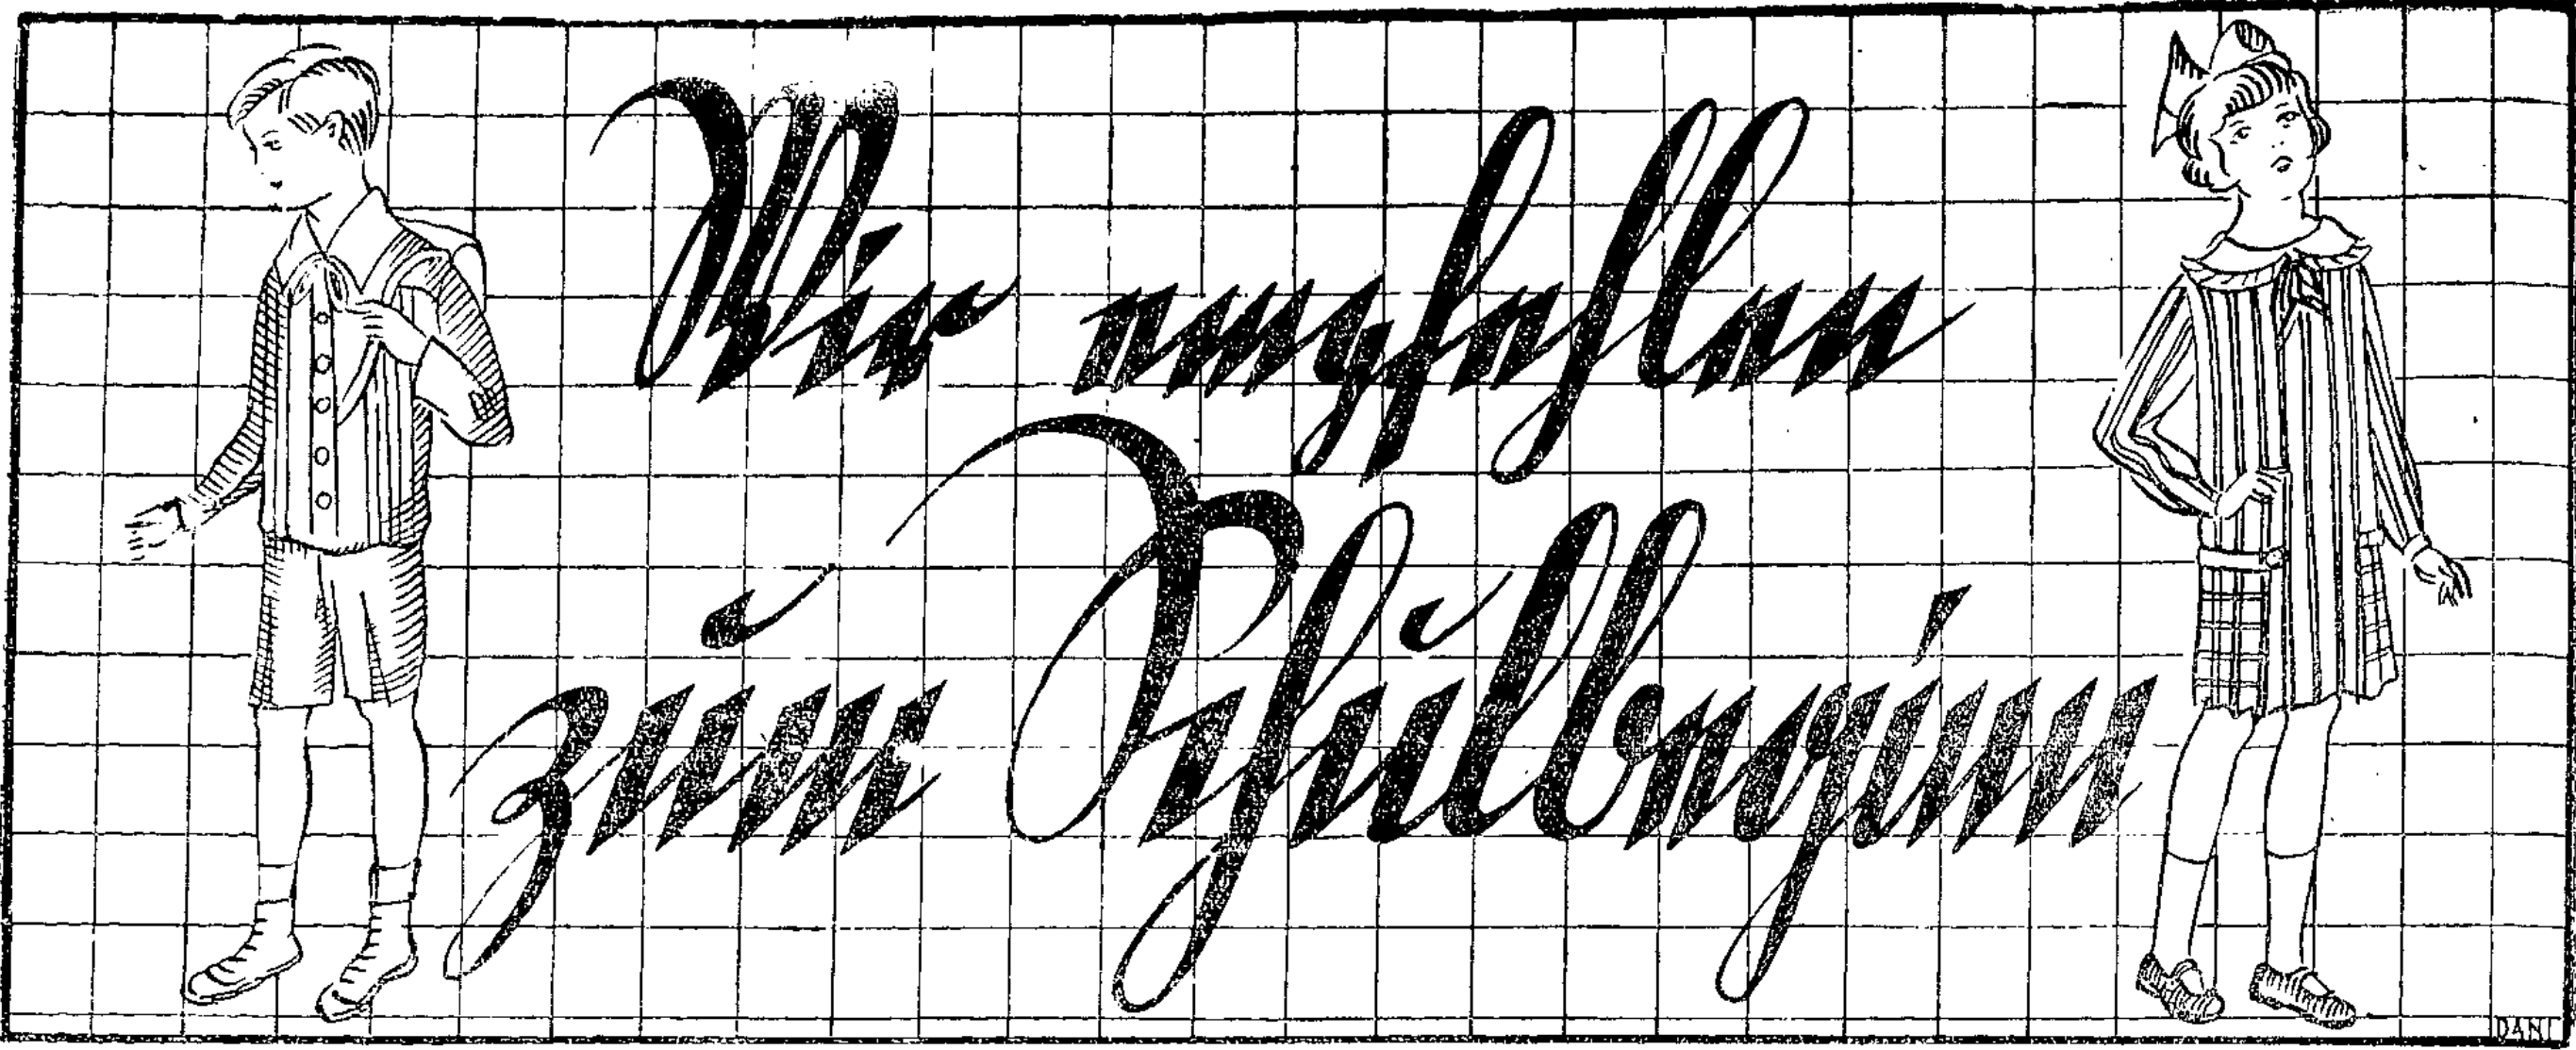 Wir empfehlen
zum Schulbeginn
DANI